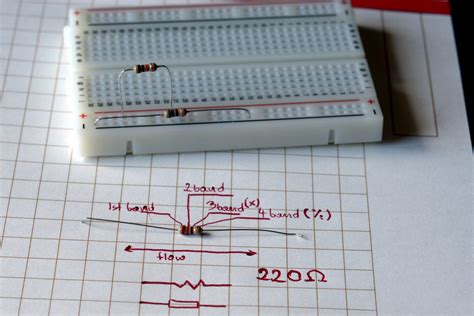 2band
1st band
3band(x)
4band(%)
flow
220Ω